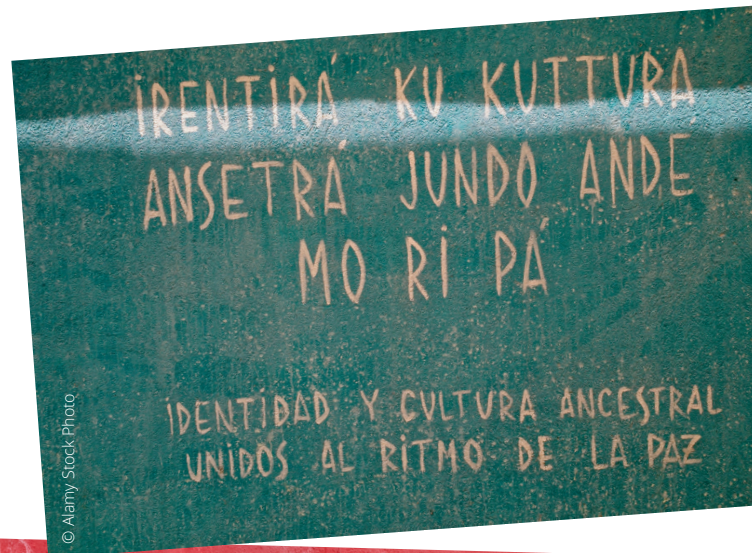 IRENTIRÁ KU KUTTURA
ANSETRÁ JUNDO ANDE
MO RI PÁ
IDENTIDAD Y CULTURA ANCESTRAL
UNIDOS AL RITMO DE LA PAZ
© Alamy Stock Photo